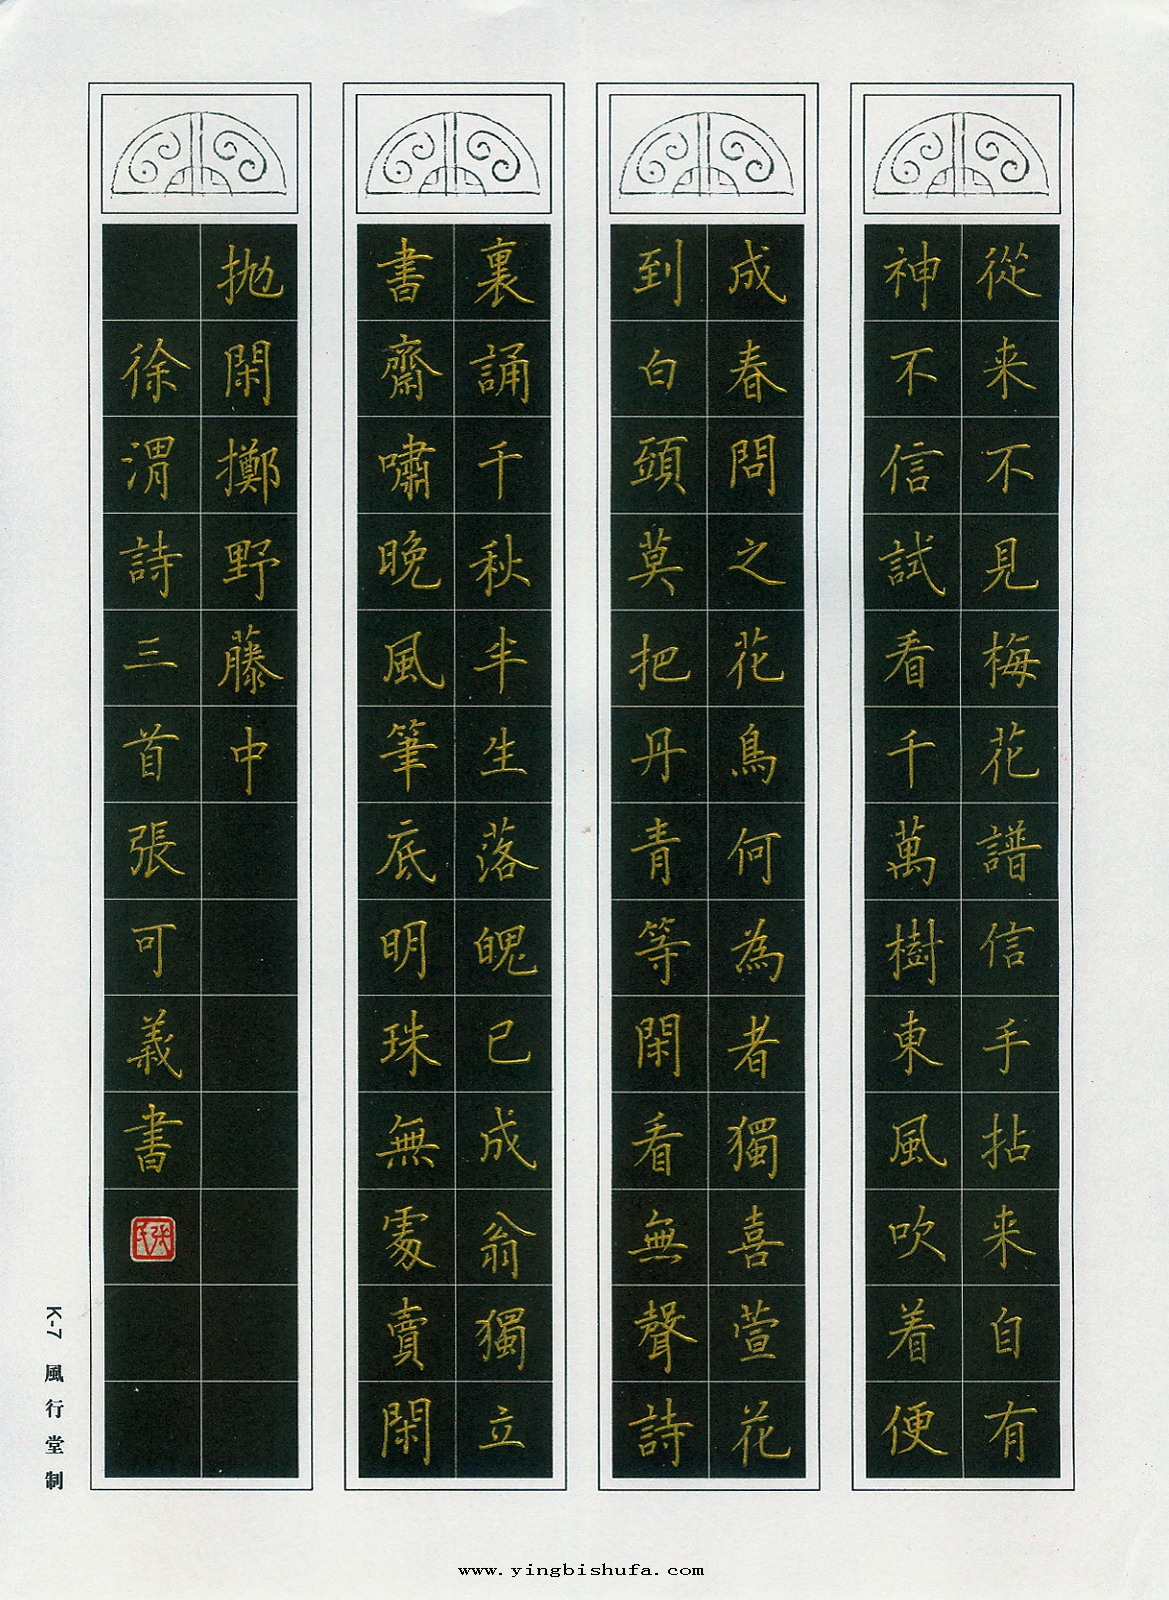 從来不見梅花譜信手拈来自有
神不信試看千萬樹東風吹着便
成春問之花鳥何為者獨喜萱花
到白頭莫把丹青等閑看無聲詩
裏誦千秋半生落魄已成翁獨立
書齋嘯晚風筆底明珠無處賣閑
抛閑擲野藤中
徐渭詩三首張可義書
K-7 風行堂制
www.yingbishufa.com